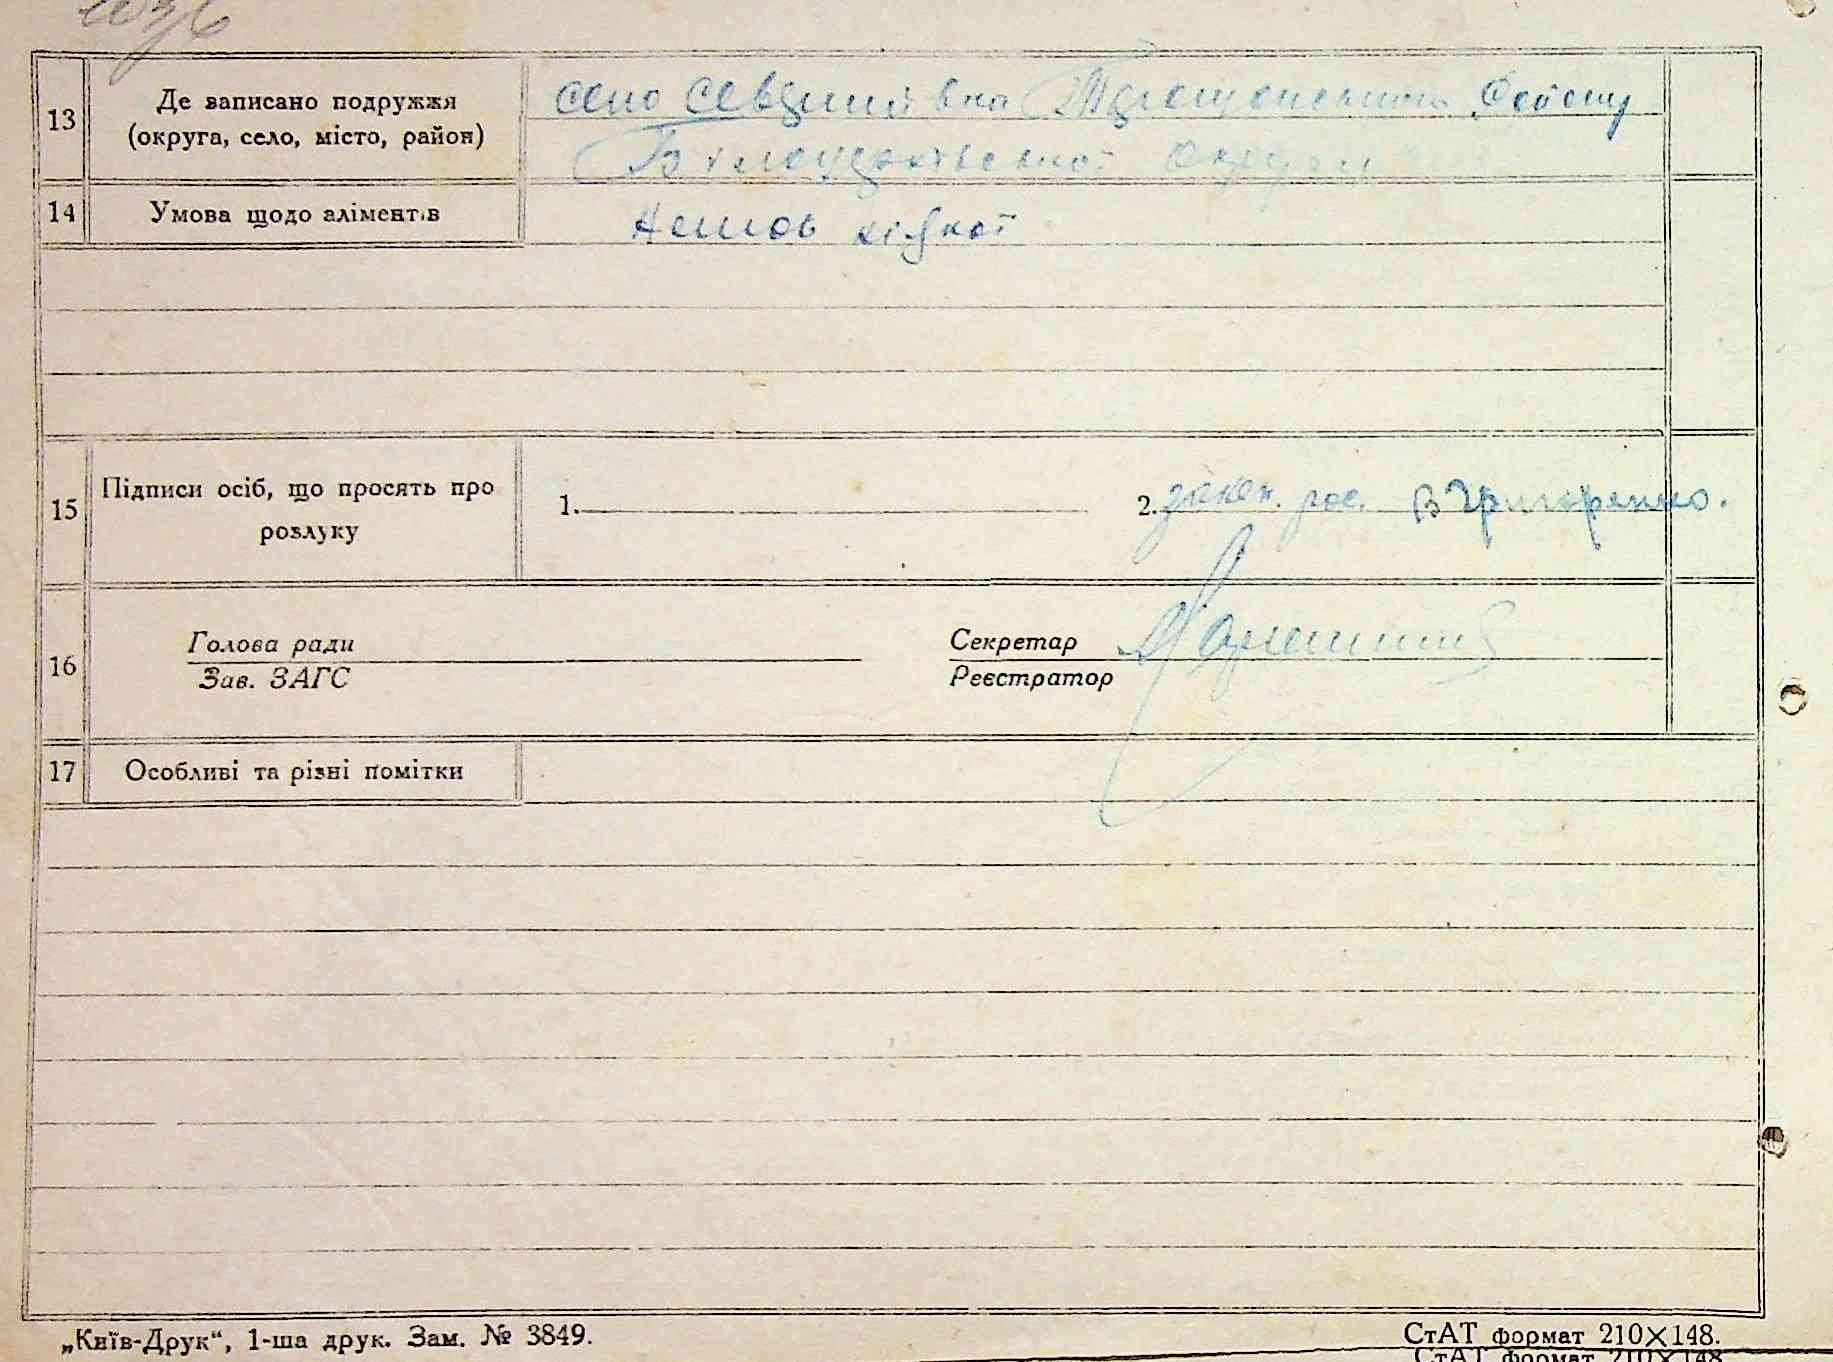 13 Де записано подружжя
(округа, село, місто, район)
село
Білоцерківської округи
14 Умова щодо аліментів
Немає ніякої
15 Підписи осіб, що просять про
розлуку
1. 2. В Григоренко.
16 Голова ради
Зав. ЗАГС
Секретар
Реєстратор
17 Особливі та різні помітки
„Київ-Друк“, 1-ша друк. Зам. № 3849.
СтАТ формат 210×148.
СтАТ формат 210×148